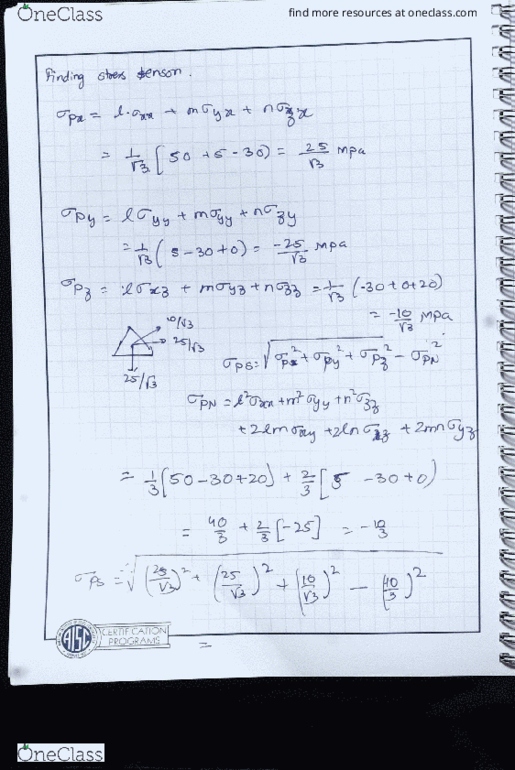 OneClass
find more resources at oneclass.com
Finding stress tensor.
σpx = l·σxx + mσyx + nσzx
= 1/√3 [50 + 5 - 30) = 25/√3 mpa
σpy = lσyy + mσyy + nσzy
= 1/√3 (5 - 30 + 0) = -25/√3 mpa
σpz = lσxz + mσyz + nσzz = 1/√3 (-30 + 0 + 20)
= -10/√3 mpa
10/√3
25/√3
25/√3
σps = √σpx² + σpy² + σpz² - σpN²
σpN = l²σxx + m²σyy + n²σzz
+ 2lmσxy + 2lnσxz + 2mnσyz
= 1/3 [50 - 30 + 20] + 2/3 [5 - 30 + 0)
= 40/3 + 2/3 [-25] = -10/3
σps = √(25/√3)² + (25/√3)² + (10/√3)² - (10/3)²
AISC CERTIFICATION
PROGRAMS
=
OneClass